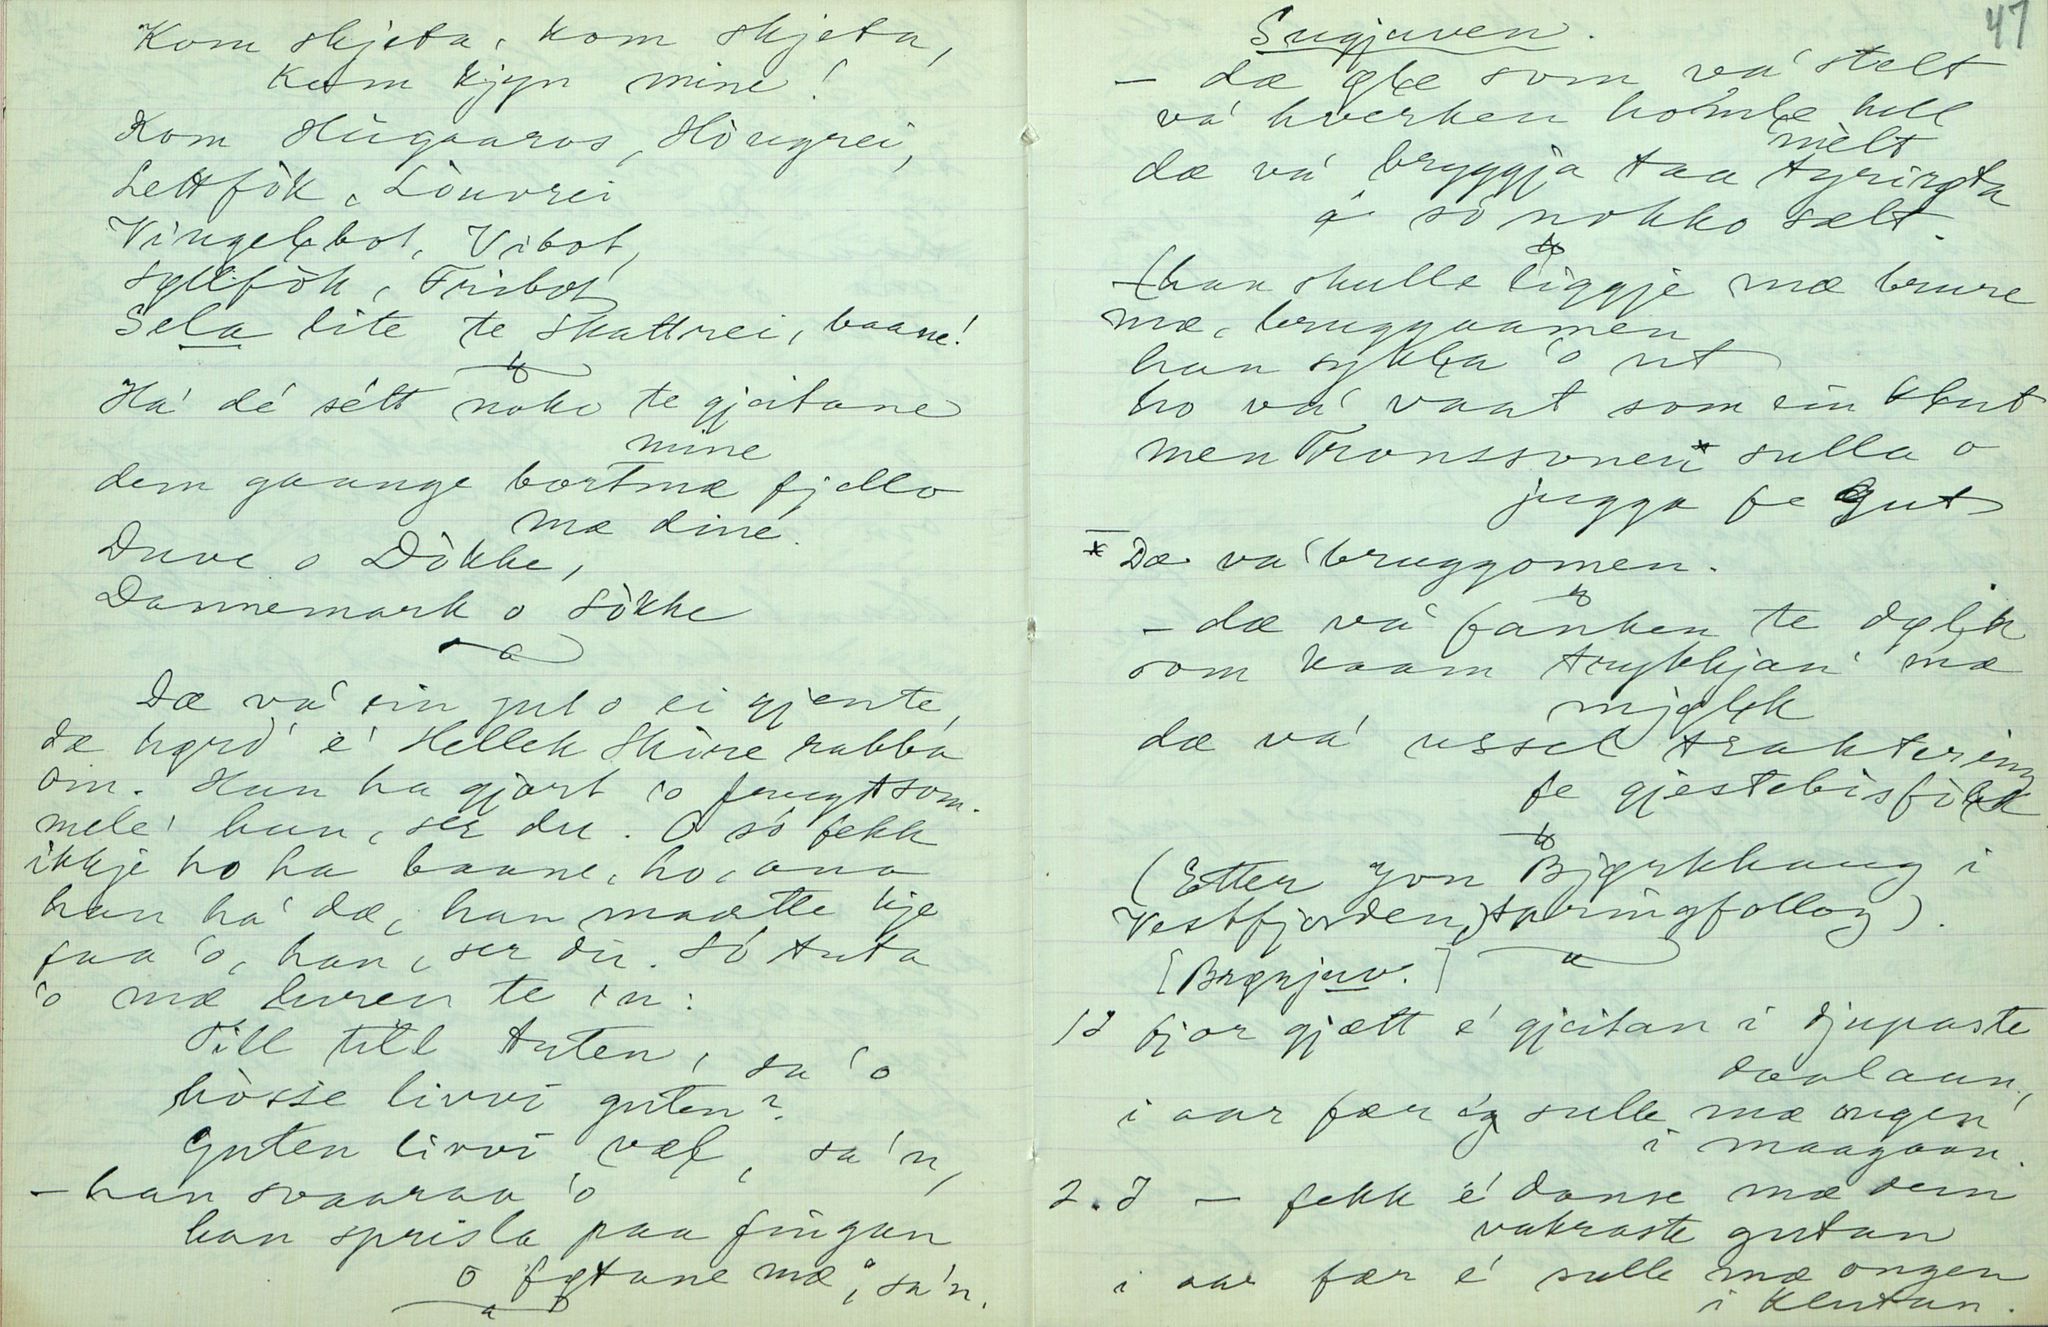 Kom skjeta, kom skjeta,
kom kjyn mine!
Kom Hùgaaros, Hòugrei,
Lettfòk, Lòuvrei
Vingelbot, Vibot,
Syllfòk, Tribot
Sela lite te skattrei, baane!
Há dé sétt noko te gjeitane
mine
dem gaange bortmæ fjello
mæ dine.
Duve o Dòkke,
Dannemark o Sòkke
Dæ vá ein gut o ei gjente,
dæ høyrd' é Hellek Skòre rabba
om. Han ha gjort 'o frugtsom-
mele' han, ser du. O só fekk
ikkje ho ha baane, ho,
han há dæ, han maatte kje
faa 'o, han, ser du. Só tuta
'o mæ luren te 'n:
Till till tuten, sa 'o
hòsse livvi guten?
Guten livvi væl, sa'n,
– han svaaraa 'o
han sprisla paa fingan
o føtane mæ, sa'n.
47
Sugjuven.
– dæ øle som vá stelt
vá hverken homle hell
mèlt
dæ vá bryggja taa tyrirota
o só nokko sælt.
– (han skulle liggje mæ brure
mæ, bruggaamen
han sykla 'o ut
ho vá vaat som ein klut
men Tronssonen* sulla o
jugga fe gut
* Dæ va bruggomen.
– dæ vá fanken te dølik
som kaam trykkjan' mæ
mjølk
dæ vá ussel traktering
fe gjestebisfòlk
(Etter Jon Bjørkhaug i
Vestfjorden, springfollog).
[Brønjuv.]
1 I fjor gjætt é gjeitan i djupaste
daalaun,
i aar fær eg sulle mæ ongen
i maagaan.
2. I – fekk é danse mæ dein
vakraste gutan
i aar fær é sulle mæ ongen
i klutan.